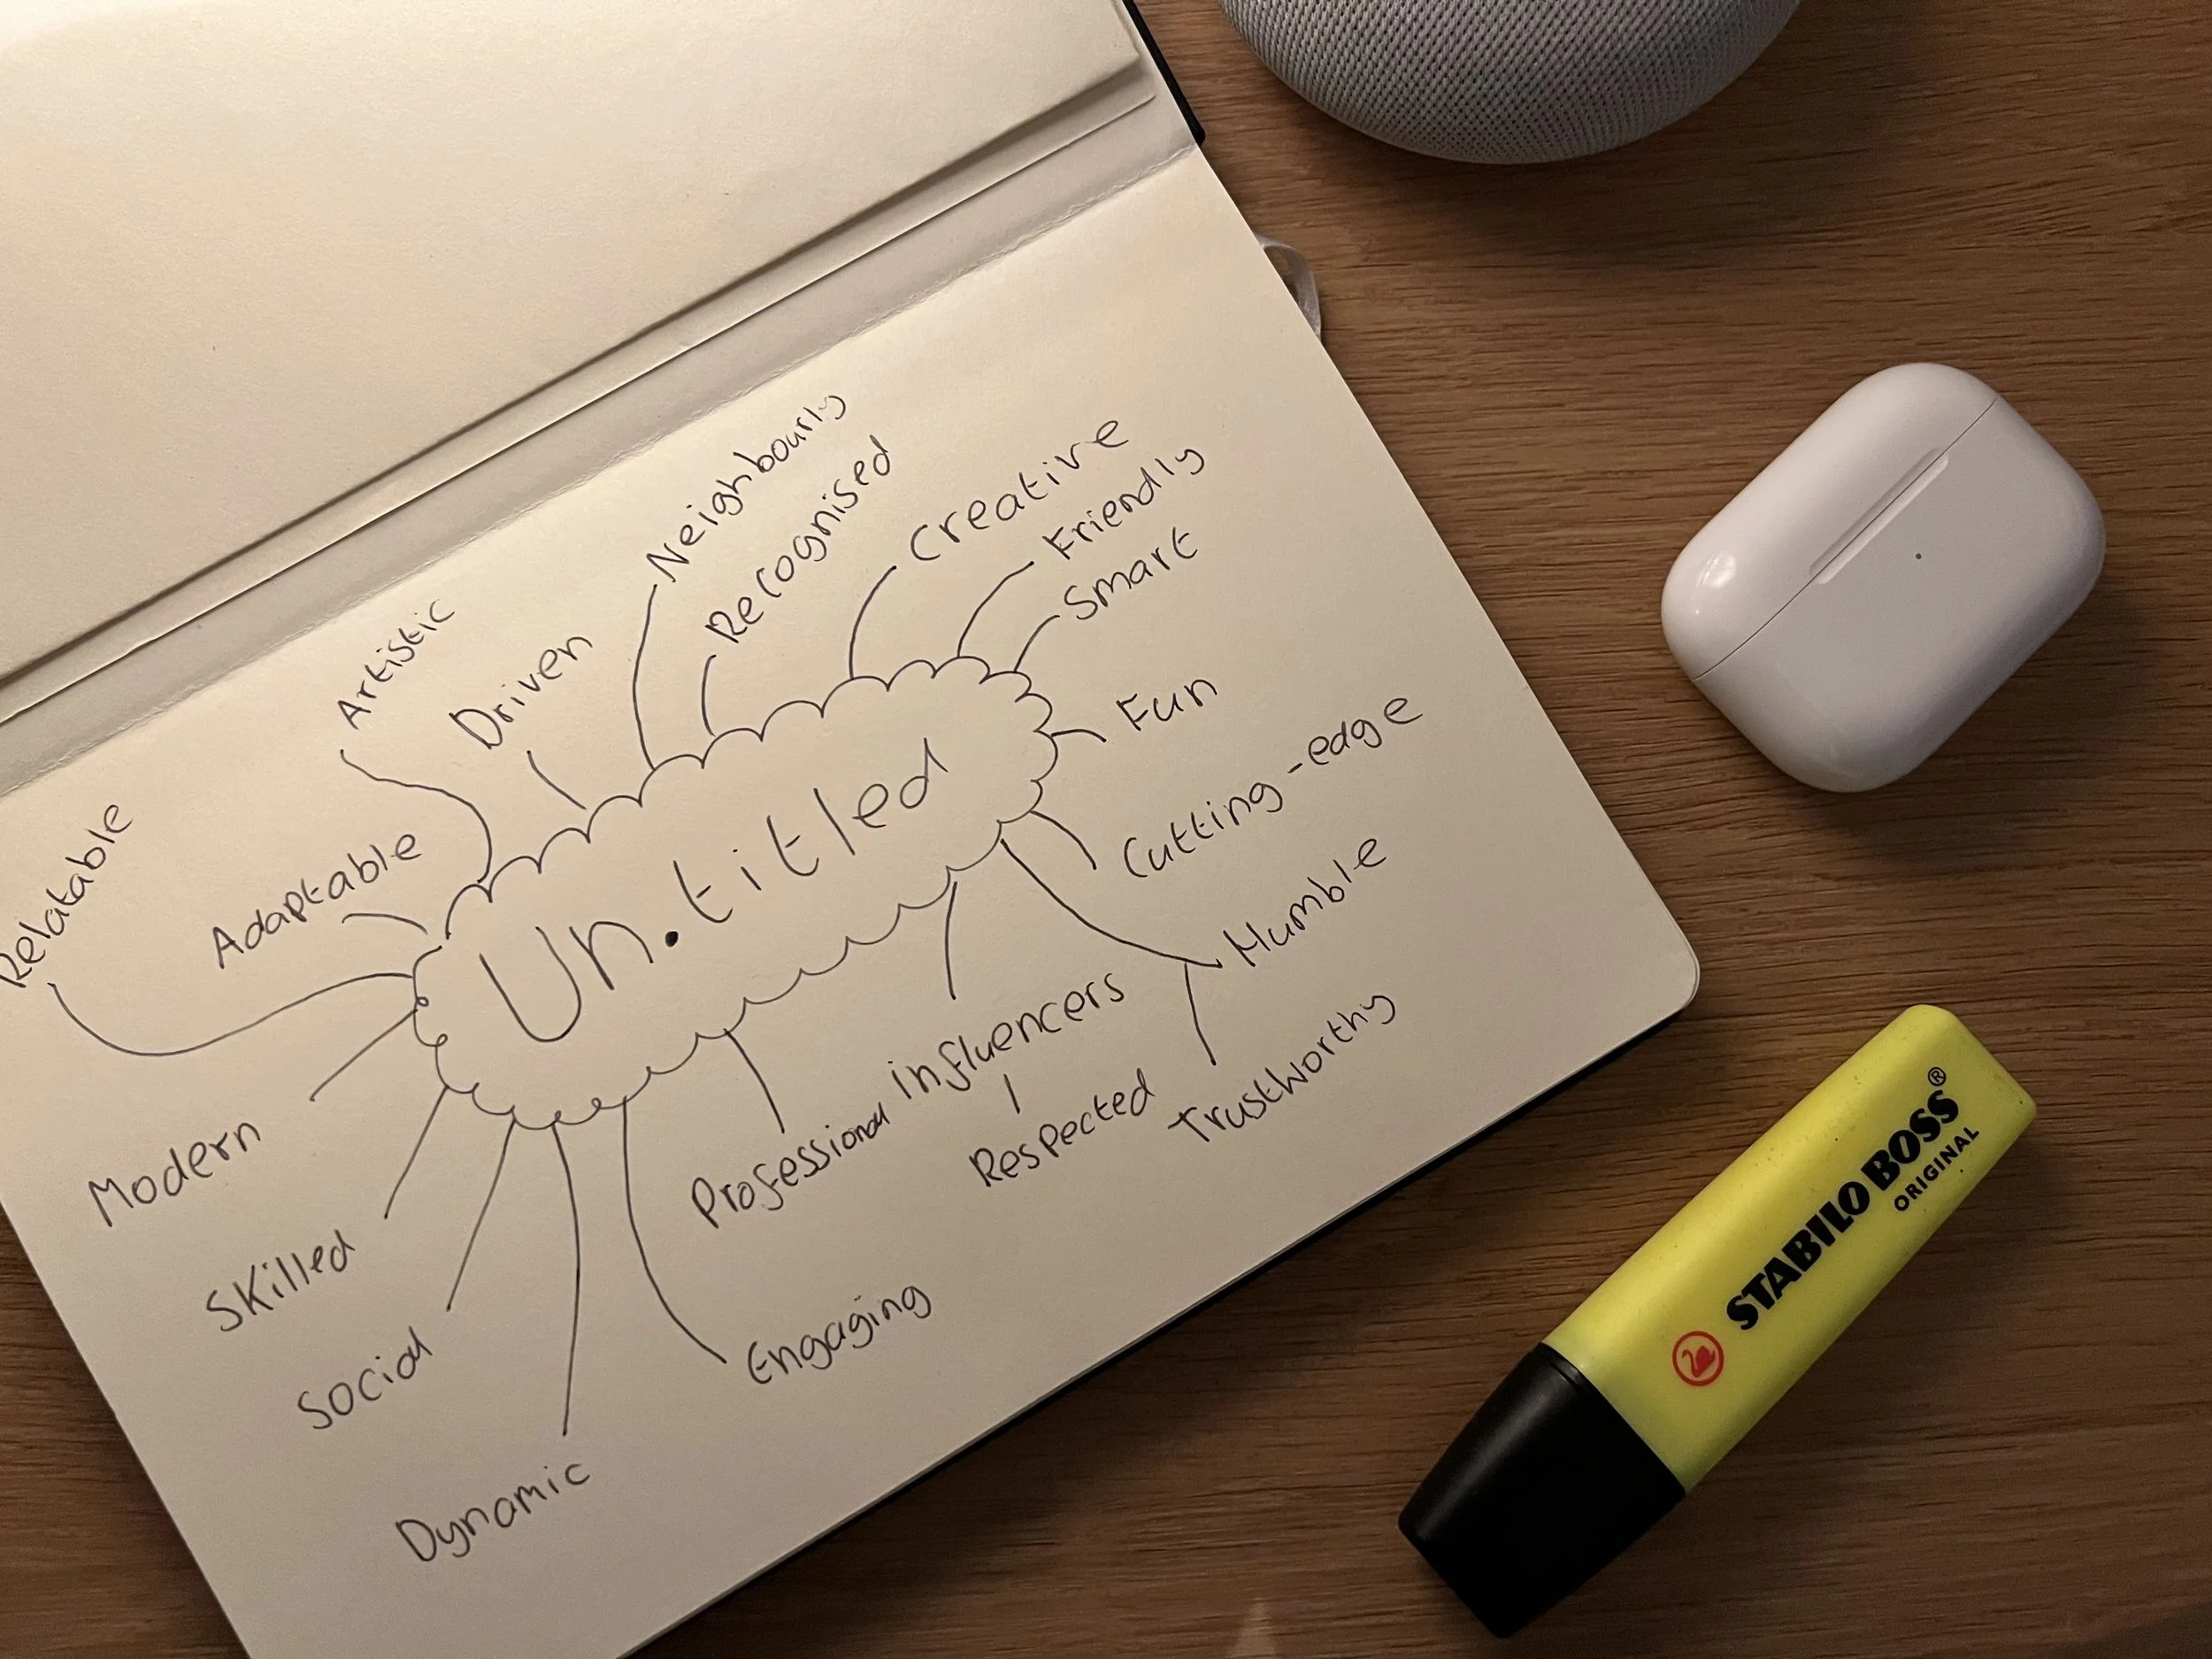 Neighbourly
Recognised
Creative
Friendly
Smart
Artistic
Driven
Fun
Cutting-edge
Relatable
Adaptable
Un.titled
Humble
influencers
Trustworthy
Respected
Professional
Modern
Skilled
Social
Engaging
Dynamic
STABILO BOSS®
ORIGINAL